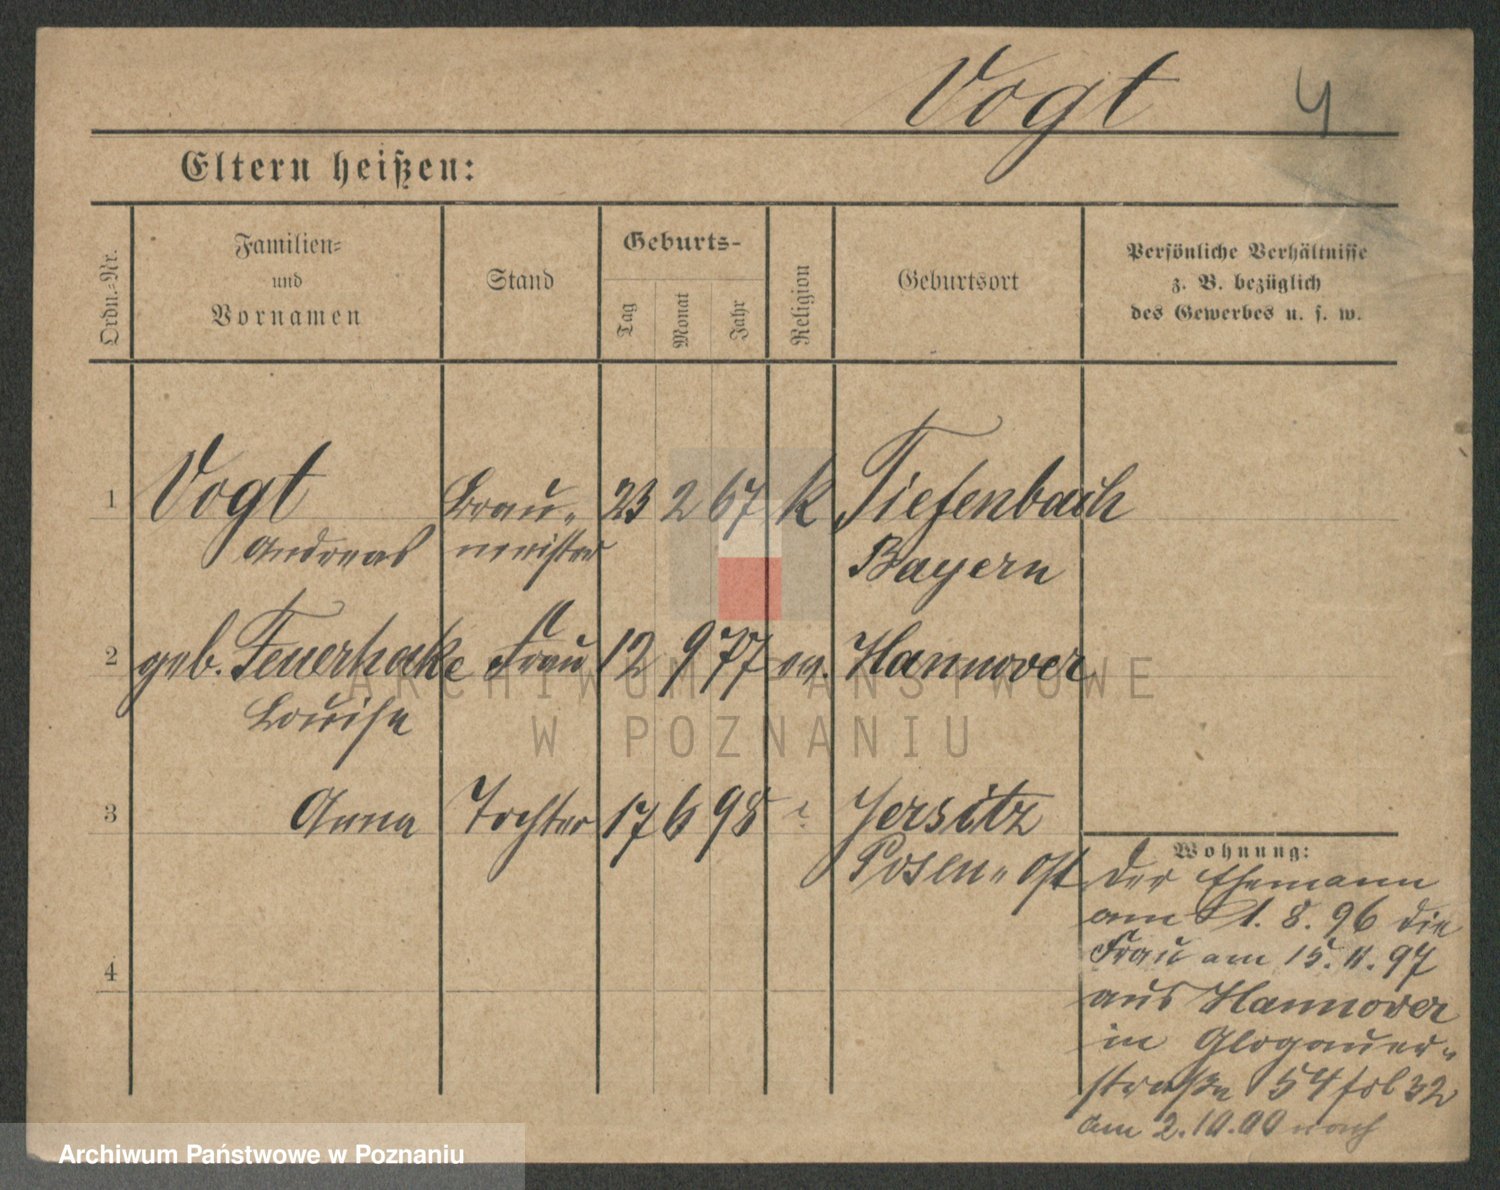 Vogt 4
Eltern heißen:
Ordn.-Nr.
Familien-
und
Vornamen
Stand
Geburts-
Tag
Monat
Jahr
Religion
Geburtsort
Persönliche Verhältnisse
z. B. bezüglich
des Gewerbes u. s. w.
1 Vogt Brau- 23 2 67 k Tiefenbach
Andreas meister Bayern
2 geb. Feuerhake Frau 12 9 77 ev. Hannover
Louise
3 Anna Tochter 17 6 98 Jersitz
Posen-Ost
4
Wohnung:
Der Ehemann
am 1. 8. 96 die
Frau am 15. 11. 97
aus Hannover
in Glogauer-
straße 54 fol 32
am 2.10.00 nach
ARCHIWUM PAŃSTWOWE
W POZNANIU
Archiwum Państwowe w Poznaniu